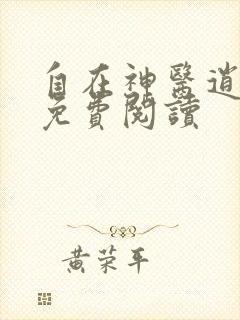 自在神醫逍
免費閱讀
黃荣平